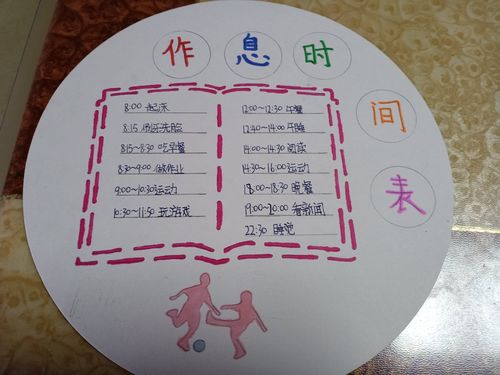 作息时间表
8:00 起床
8:15 刷牙洗脸
8:15~8:30 吃早餐
8:30~9:00 做作业
9:00~10:30 运动
10:30~11:50 玩游戏
12:00~12:30 午餐
12:40~14:00 午睡
14:00~14:30 阅读
14:30~16:00 运动
18:00~18:30 晚餐
19:00~20:00 看新闻
22:30 睡觉